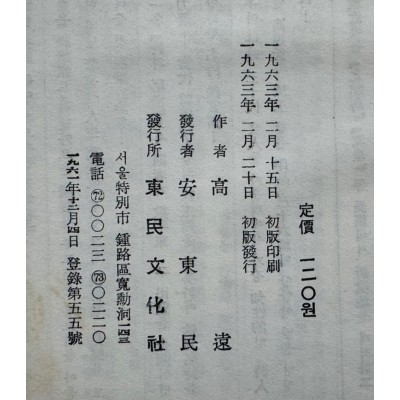 定價 一二〇원
一九六三年 二月 十五日 初版印刷
一九六三年 二月 二十日 初版發行
作者 高遠
發行者 安東民
發行所 東民文化社
서울特別市 鍾路區寬勳洞一四三
電話 ⑫〇〇二三 ⑬〇二二〇
一九六一年十二月四日 登錄第五五號